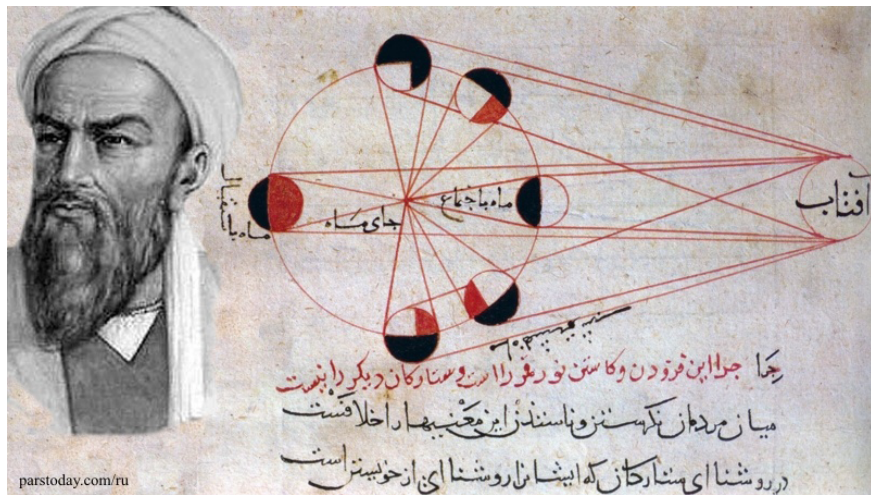 افتاب
ماه باجتماع
جای ماه
ماه باستقبال
چرا جرا این فزودن و کاستن نور قمر را است و ستارکان دیکر را نیست
میان مردمان نکرستن و ناسندن این معنیها را خلافست
در روشنای ستارکان که ایشانرا روشنای از خویستن است
parstoday.com/ru